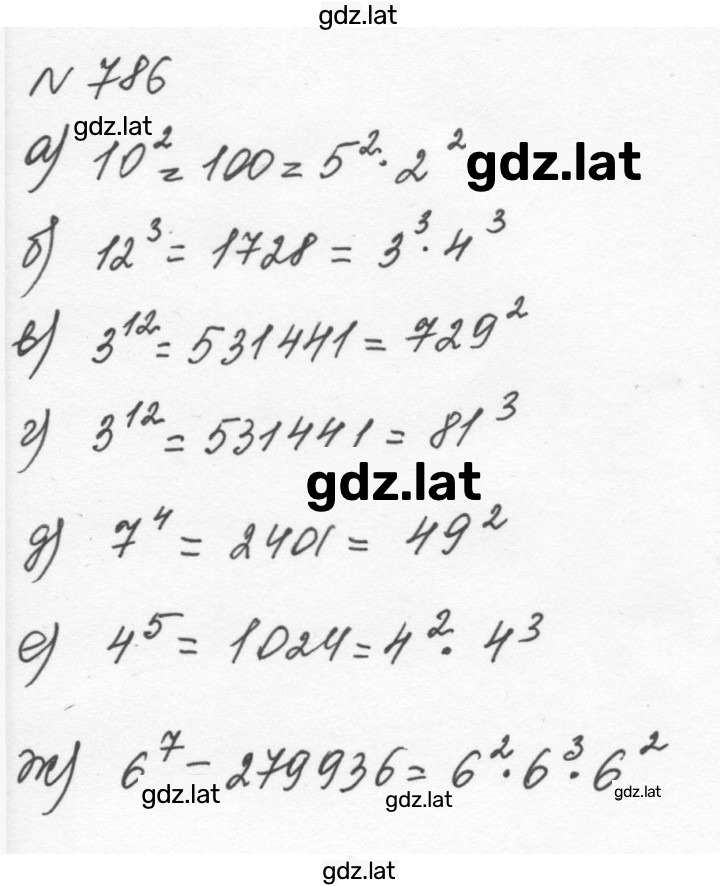 gdz.lat
№ 786
gdz.lat
а) 10² = 100 = 5² · 2²
gdz.lat
б) 12³ = 1728 = 3³ · 4³
в) 3¹² = 531441 = 729²
г) 3¹² = 531441 = 81³
gdz.lat
д) 7⁴ = 2401 = 49²
е) 4⁵ = 1024 = 4² · 4³
ж) 6⁷ - 279936 = 6² · 6³ · 6²
gdz.lat
gdz.lat
gdz.lat
gdz.lat